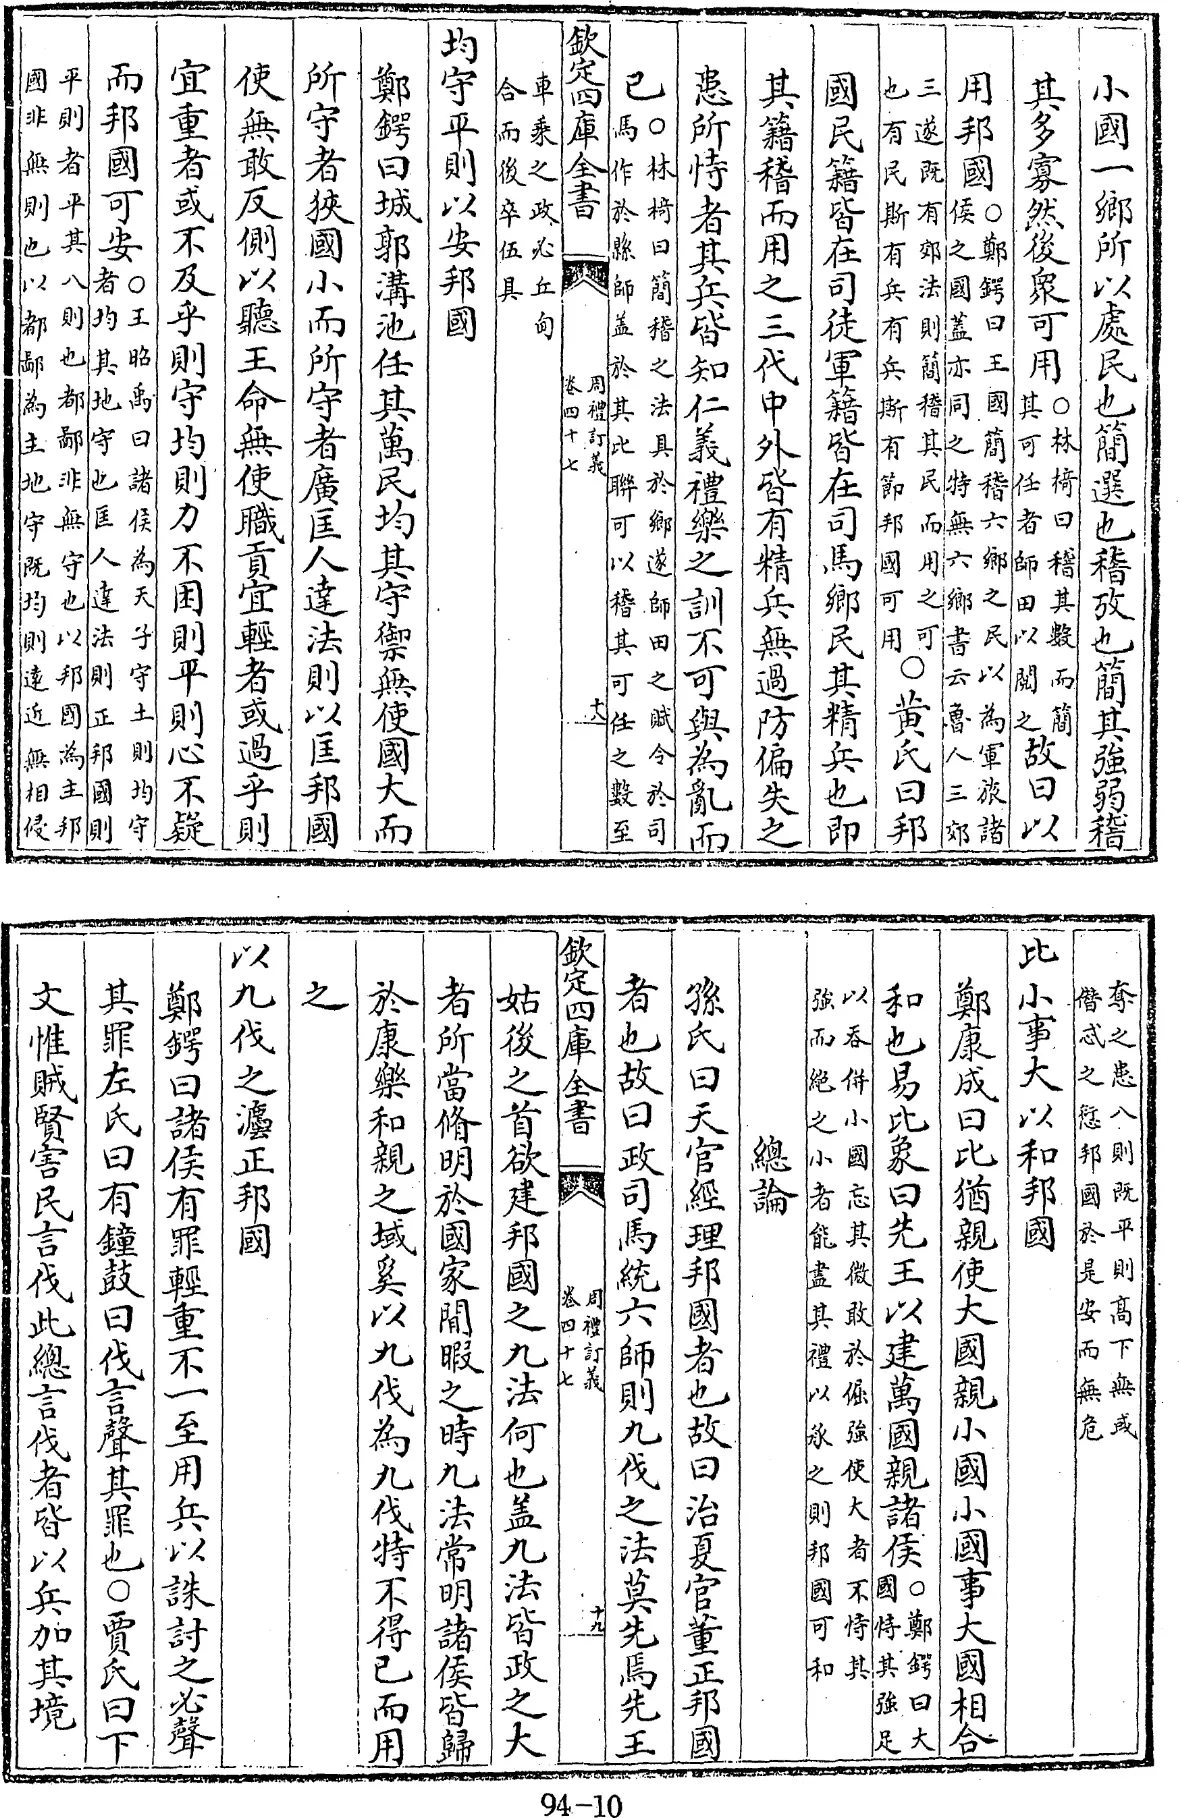 小國一鄉所以處民也簡選也稽攷也簡其強弱稽
其多寡然後衆可用○林椅曰稽其數而簡其可任者師田以閱之故曰以
用邦國○鄭鍔曰王國簡稽六鄉之民以為軍旅諸侯之國蓋亦同之特無六鄉書云魯人三郊
三遂既有郊法則簡稽其民而用之可也有民斯有兵有兵斯有節邦國可用○黃氏曰邦
國民籍皆在司徒軍籍皆在司馬鄉民其精兵也即
其籍稽而用之三代中外皆有精兵無過防偏失之
患所恃者其兵皆知仁義禮樂之訓不可與為亂而
已○林椅曰簡稽之法具於鄉遂師田之賦令於司馬作於縣師蓋於其比聯可以稽其可任之數至
欽定四庫全書
周禮訂義
卷四十七
十八
車乘之政必丘甸
合而後卒伍具
均守平則以安邦國
鄭鍔曰城郭溝池任其萬民均其守禦無使國大而
所守者狹國小而所守者廣匡人達法則以匡邦國
使無敢反側以聽王命無使職貢宜輕者或過乎則
宜重者或不及乎則守均則力不困則平則心不疑
而邦國可安○王昭禹曰諸侯為天子守土則均守者均其地守也匡人達法則正邦國則
平則者平其八則也都鄙非無守也以邦國為主邦
國非無則也以都鄙為主地守既均則遠近無相侵
奪之患八則既平則高下無或
僭忒之愆邦國於是安而無危
比小事大以和邦國
鄭康成曰比猶親使大國親小國小國事大國相合
和也易比象曰先王以建萬國親諸侯○鄭鍔曰大國恃其強足
以吞併小國忘其微敢於倔強使大者不恃其
強而絶之小者能盡其禮以承之則邦國可和
總論
孫氏曰天官經理邦國者也故曰治夏官董正邦國
者也故曰政司馬統六師則九伐之法莫先焉先王
欽定四庫全書
周禮訂義
卷四十七
十九
姑後之首欲建邦國之九法何也蓋九法皆政之大
者所當脩明於國家閒暇之時九法常明諸侯皆歸
於康樂和親之域奚以九伐為九伐特不得已而用
之
以九伐之灋正邦國
鄭鍔曰諸侯有罪輕重不一至用兵以誅討之必聲
其罪左氏曰有鐘鼓曰伐言聲其罪也○賈氏曰下
文惟賊賢害民言伐此總言伐者皆以兵加其境
94-10